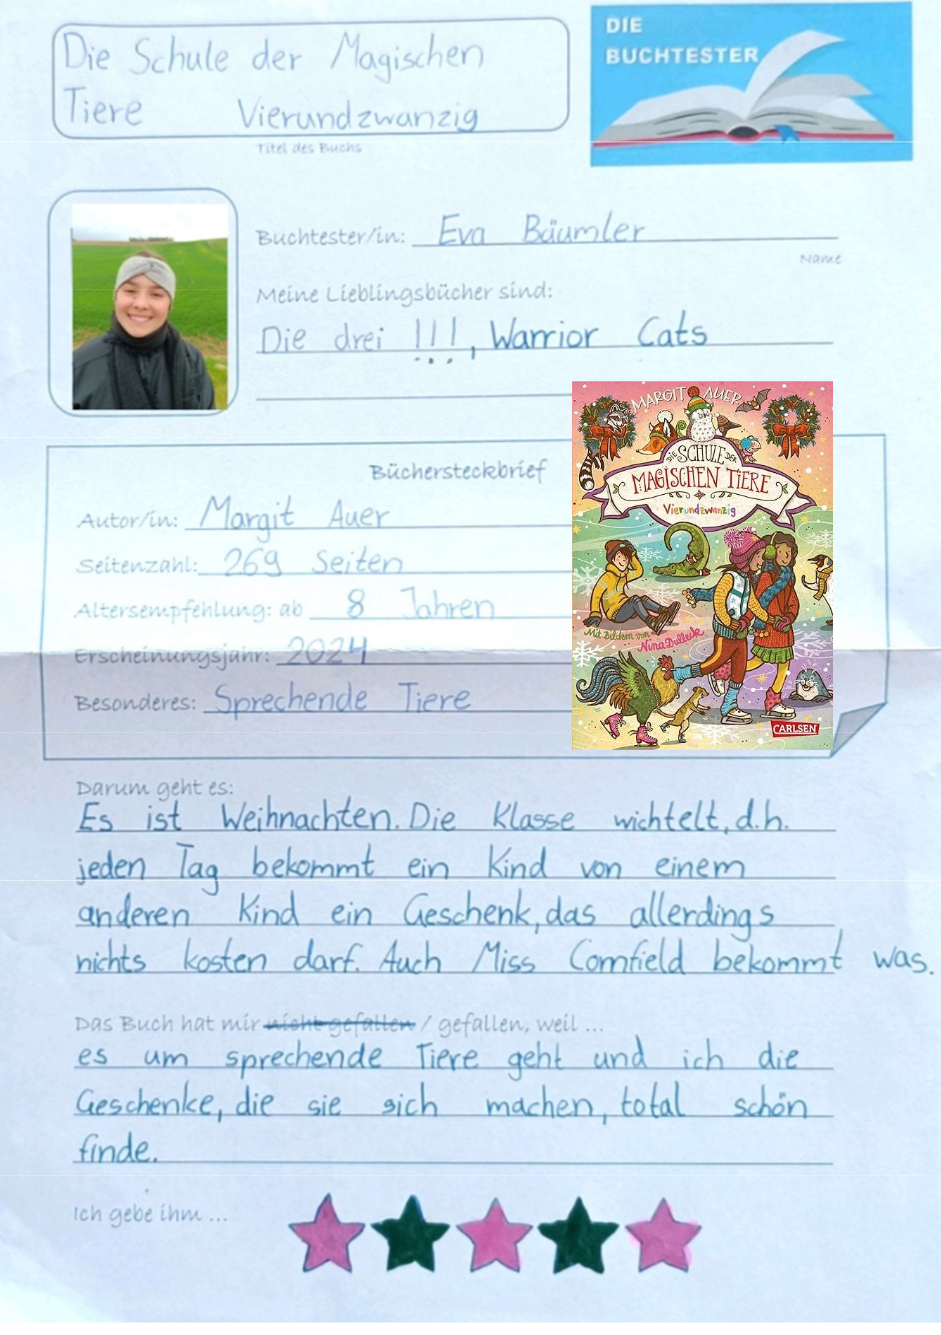 Die Schule der Magischen
Tiere Vierundzwanzig
Titel des Buchs
DIE
BUCHTESTER
Buchtester/in: Eva Bäumler
Name
Meine Lieblingsbücher sind:
Die drei !!!, Warrior Cats
Büchersteckbrief
Autor/in: Margit Auer
Seitenzahl: 269 Seiten
Altersempfehlung: ab 8 Jahren
Erscheinungsjahr: 2024
Besonderes: Sprechende Tiere
MARGIT AUER
DIE SCHULE DER
MAGISCHEN TIERE
Vierundzwanzig
Mit Bildern von
Nina Dulleck
CARLSEN
Darum geht es:
Es ist Weihnachten. Die Klasse wichtelt, d.h.
jeden Tag bekommt ein Kind von einem
anderen Kind ein Geschenk, das allerdings
nichts kosten darf. Auch Miss Cornfield bekommt was.
Das Buch hat mir nicht gefallen / gefallen, weil ...
es um sprechende Tiere geht und ich die
Geschenke, die sie sich machen, total schön
finde.
Ich gebe ihm ...